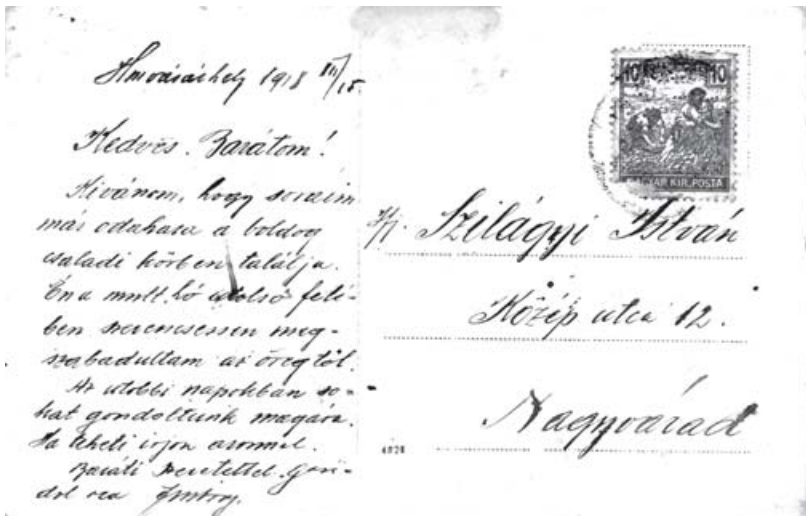 Hmvásárhely 1918 XII/15.
Kedves Barátom!
Kivánom, hogy soraim
már odahaza a boldog
családi körben találja.
Én a mult hó utolsó felé-
ben szerencsésen meg-
szabadultam az öregtől.
Az utobbi napokban so-
kat gondoltunk magára.
Ha teheti irjon azonnal.
Baráti szeretettel gon-
dol rea
10 10
MAGYAR KIR. POSTA
Szilágyi István
Közép utca 12.
Nagyvárad